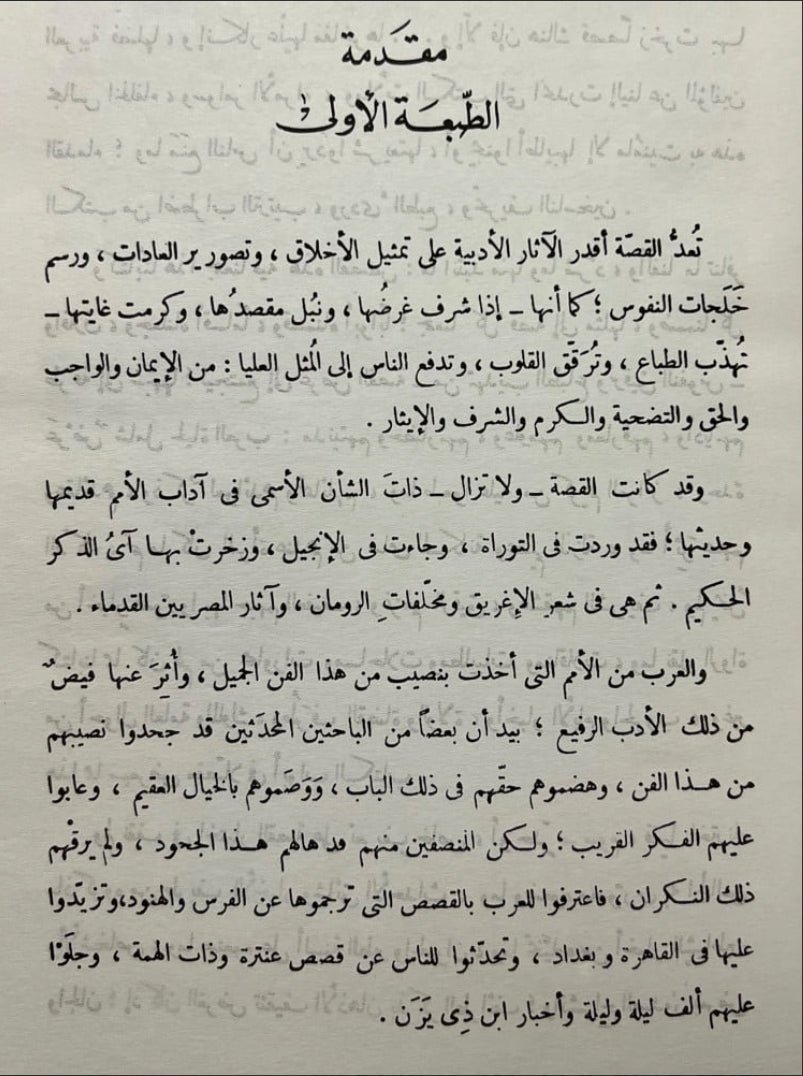 مقدمة
الطّبعة الأولى
تُعدُّ القصّة أقدر الآثار الأدبية على تمثيل الأخلاق ، وتصوير العادات ، ورسم
خَلَجات النفوس ؛ كما أنها ـ إذا شرف غرضُها ، ونبُل مقصدُها ، وكرمت غايتها ـ
تُهذّب الطباع ، وتُرَقّق القلوب ، وتدفع الناس إلى المُثل العليا : من الإيمان والواجب
والحق والتضحية والكرم والشرف والإيثار .
وقد كانت القصة ـ ولا تزال ـ ذاتَ الشأن الأسمى فى آداب الأمم قديمها
وحديثها ؛ فقد وردت فى التوراة ، وجاءت فى الإنجيل ، وزخرتْ بها آىُ الذكر
الحكيم . ثم هى فى شعر الإغريق ومخلّفاتِ الرومان ، وآثار المصريين القدماء .
والعرب من الأمم التى أخذت بنصيب من هذا الفن الجميل ، وأُثِرَ عنها فيضٌ
من ذلك الأدب الرفيع ؛ بيد أن بعضاً من الباحثين المحدَثين قد جحدوا نصيبهم
من هذا الفن ، وهضموهم حقّهم فى ذلك الباب ، وَوَصَموهم بالخيال العقيم ، وعابوا
عليهم الفكر القريب ؛ ولكن المنصفين منهم قد هالهم هذا الجحود ، ولم يرقْهم
ذلك النكران ، فاعترفوا للعرب بالقصص التى ترجموها عن الفرس والهنود،وتزيّدوا
عليها فى القاهرة وبغداد ، وتحدّثوا للناس عن قصص عنترة وذات الهمة ، وجلَوْا
عليهم ألف ليلة وليلة وأخبار ابن ذِى يَزَن .